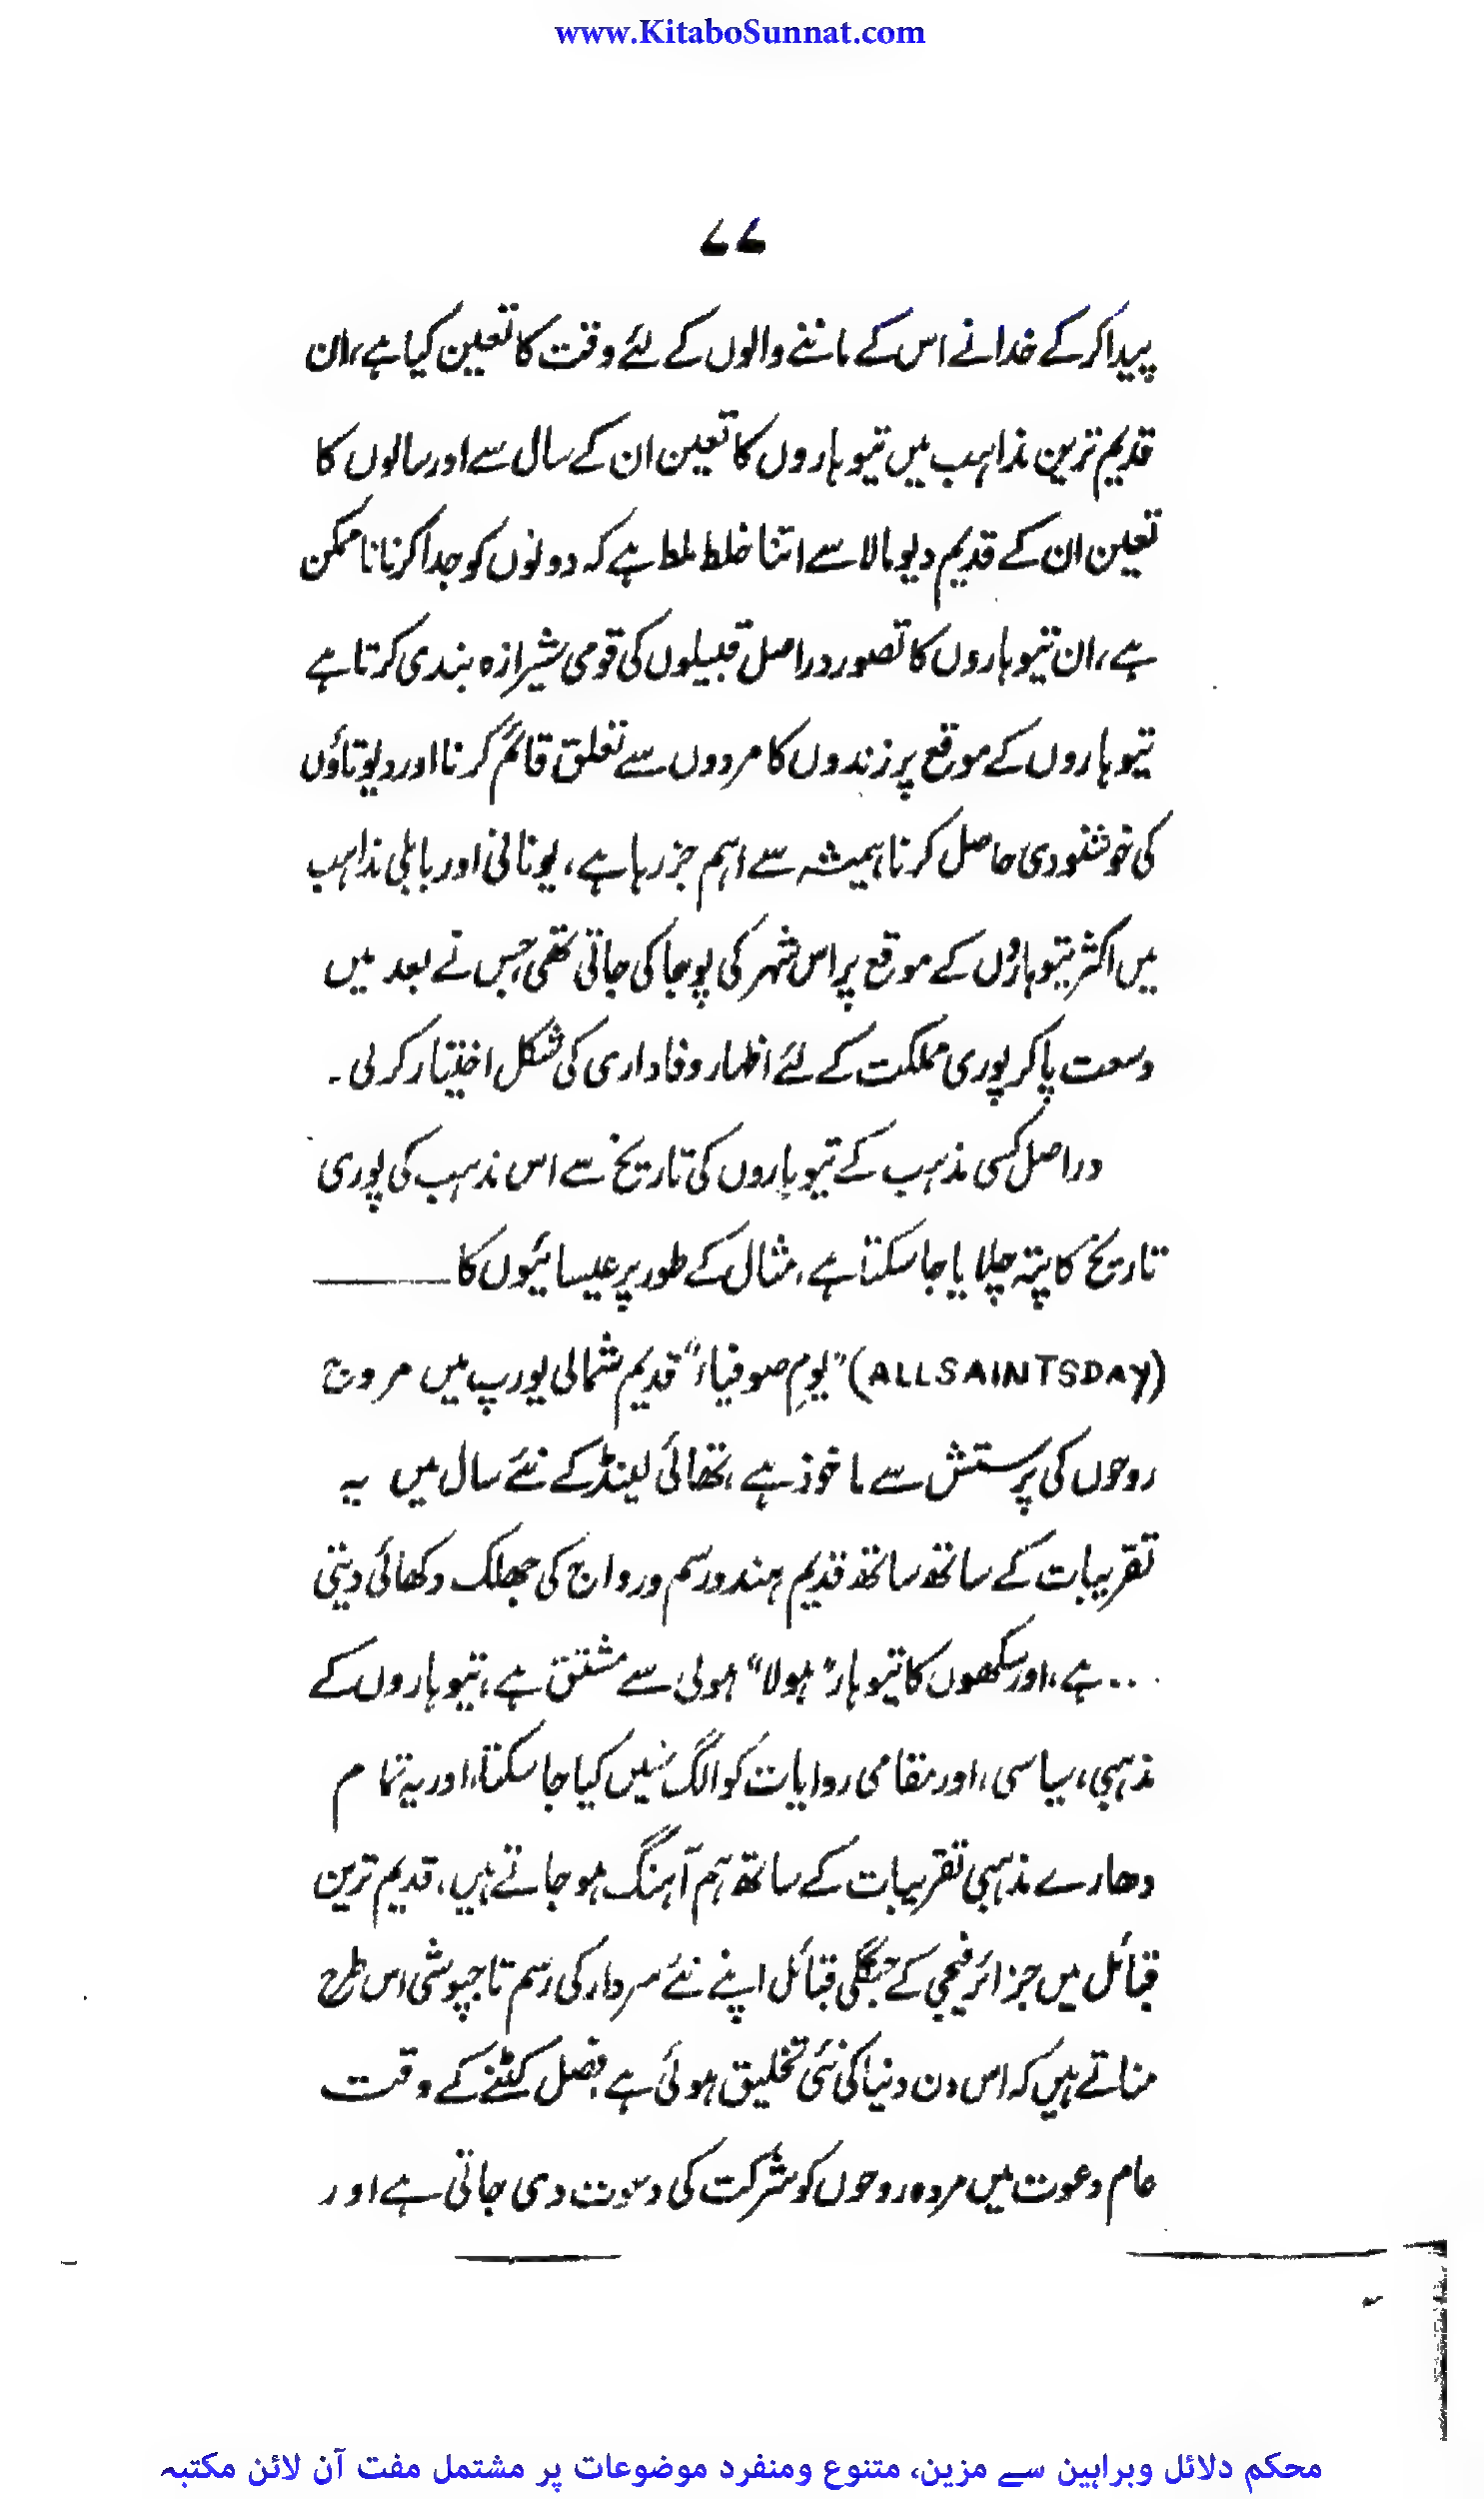 www.KitaboSunnat.com
۷۷
پیدا کر کے خدا نے اس کے ماننے والوں کے لئے وقت کا تعین کیا ہے، ان
قدیم ترین مذاہب میں تیوہاروں کا تعین ان کے سال سے اور سالوں کا
تعین ان کے قدیم دیو مالا سے اتنا خلط ملط ہے کہ دونوں کو جدا کرنا ناممکن
ہے، ان تیوہاروں کا تصور دراصل قبیلوں کی قومی شیرازہ بندی کرتا ہے
تیوہاروں کے موقع پر زندوں کا مردوں سے تعلق قائم کرنا اور دیوتاؤں
کی خوشنودی حاصل کرنا ہمیشہ سے اہم جز رہا ہے، یونانی اور بابلی مذاہب
میں اکثر تیوہاروں کے موقع پر اس شہر کی پوجا کی جاتی تھی جس نے بعد میں
وسعت پا کر پوری مملکت کے لئے اظہار وفاداری کی شکل اختیار کر لی۔
دراصل کسی مذہب کے تیوہاروں کی تاریخ سے اس مذہب کی پوری
تاریخ کا پتہ چلایا جا سکتا ہے، مثال کے طور پر عیسائیوں کا ـــــــــ
(ALLSAINTSDAY) "یومِ صوفیاء" قدیم شمالی یورپ میں مروج
روحوں کی پرستش سے ماخوذ ہے، تھائی لینڈ کے نئے سال میں یہ
تقریبات کے ساتھ ساتھ قدیم ہندو رسم و رواج کی جھلک دکھائی دیتی
... ہے، اور سکھوں کا تیوہار "ہولا" ہولی سے مشتق ہے، تیوہاروں کے
مذہبی، سیاسی، اور مقامی روایات کو الگ نہیں کیا جا سکتا، اور یہ تمام
دھارے مذہبی تقریبات کے ساتھ ہم آہنگ ہو جاتے ہیں، قدیم ترین
قبائل میں جزائر فیجی کے جنگلی قبائل اپنے نئے سردار کی رسم تاجپوشی اس طرح
مناتے ہیں کہ اس دن دنیا کی نئی تخلیق ہوئی ہے فصل کٹنے کے وقت
عام دعوت میں مردہ روحوں کو شرکت کی دعوت دی جاتی ہے اور
محکم دلائل وبراہین سے مزین، متنوع ومنفرد موضوعات پر مشتمل مفت آن لائن مکتبہ